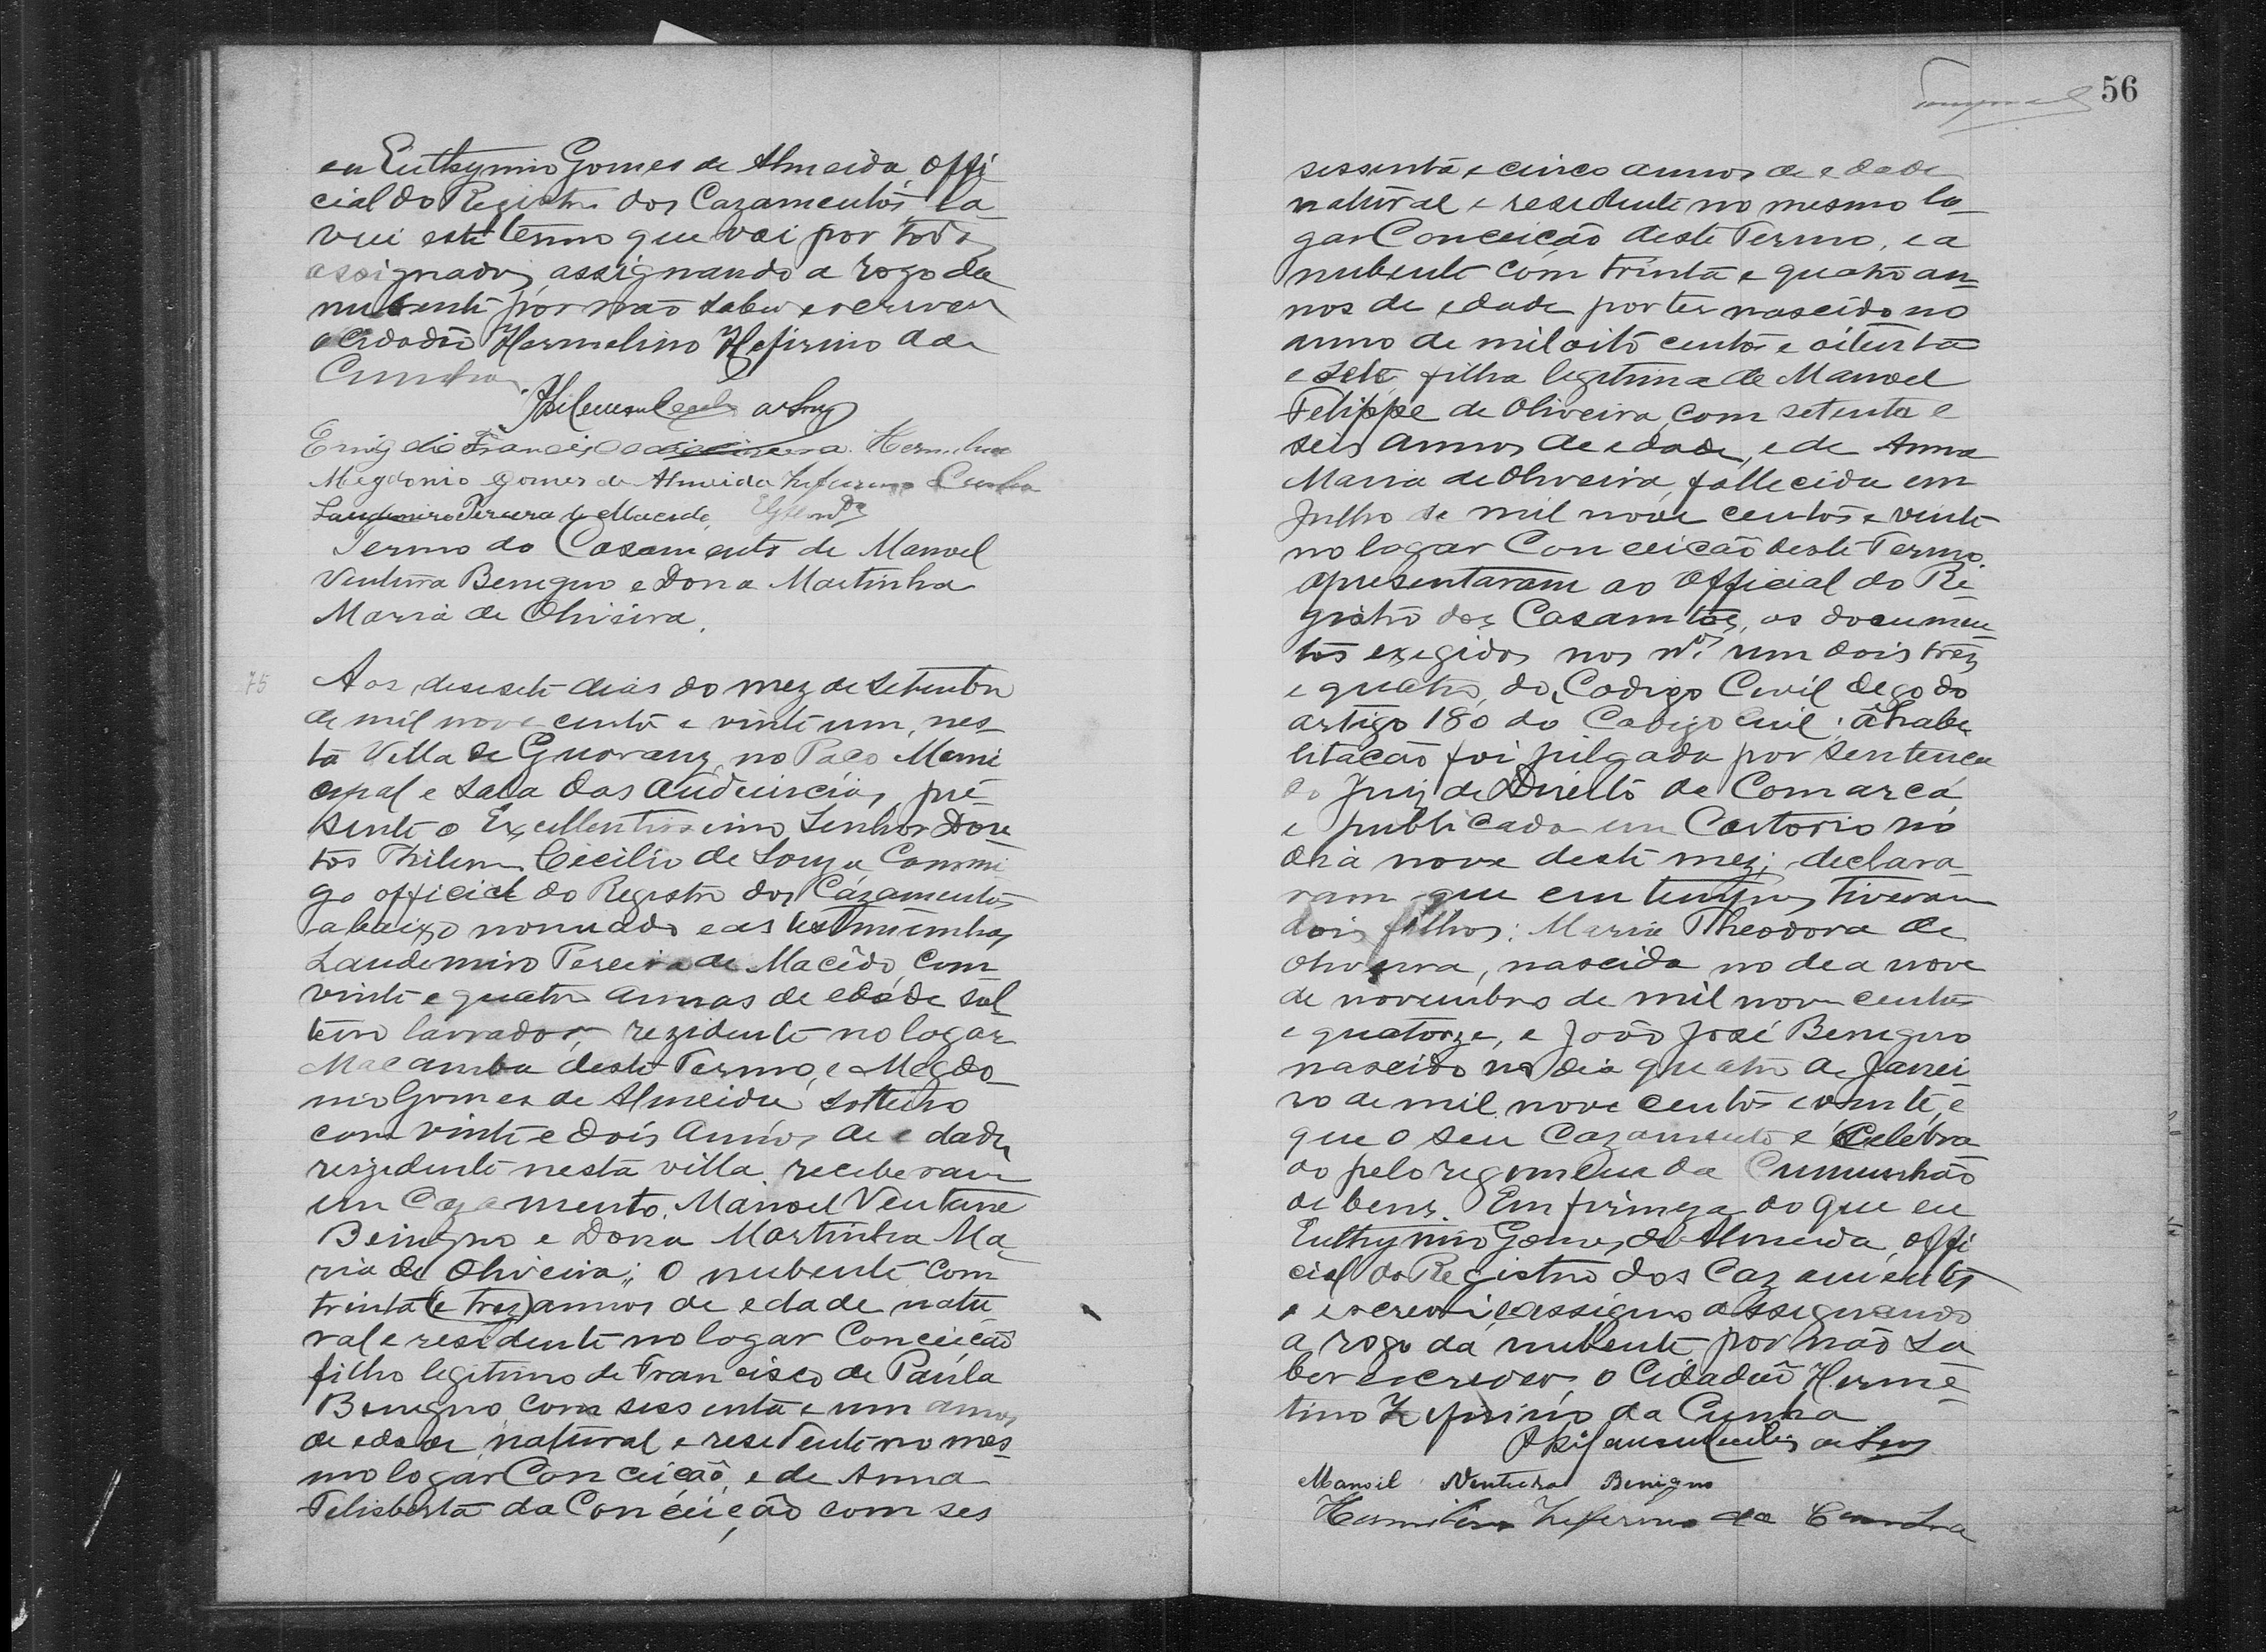 eu Euthymio Gomes de Almeida offi
cial do Registro dos Cazamentos la
vrei este termo que vai por todos
assignados, assignando a rogo da
nubente por não saber escrever
o Cidadão Hermelino Zefirino da
Cunha.
Francisco
Megdonio Gomes de Almeida Zeferino Cunha
Laudemiro Pereira de Macedo
Termo do Casamento de Manoel
Ventura Benigno e Dona Martinha
Maria de Oliveira.
75
Aos desesete dias do mez de Setembro
de mil nove cento e vinte um, nes_
ta Villa de Guarany, no Paço Muni
cipal e sala das audiencias, pre_
sente o Excellentissimo Senhor Dou
tor Philemon Cecilio de Souza, Commi
go official do Registro dos Cazamentos
abaixo nomeado e as testemunhas
Laudemiro Pereira de Macêdo, com
vinte e quatro annos de edade sol
teiro lavrador, rezidente no logar
Macamba deste Termo, e Megdo_
nio Gomes de Almeida solteiro
com vinte e dois annos de edade,
rezidente nesta villa, receberam
em Cazamento, Manoel Ventura
Benigno e Dona Martinha Ma_
ria de Oliveira; O nubente com
trinta (e trez) annos de edade natu
ral e residente no logar Conceição
filho legitimo de Francisco de Paula
Benigno com sessenta e um annos
de edade natural e residente no mes
mo logar Conceição, e de Anna
Felisberta da Conceição com ses
56
sessenta e cinco annos de edade
natural e residente no mesmo lo_
gar Conceição deste Termo, e a
nubente com trinta e quatro an_
nos de edade por ter nascido no
anno de mil oito centos e oitenta
e sete, filha legitima de Manoel
Felippe de Oliveira, com setenta e
seis annos de edade, e de Anna
Maria de Oliveira, fallecida em
Julho de mil nove centos e vinte
no logar Conceição deste Termo.
apresentaram ao Official do Re_
gistro dos Casamtos, os documen_
tos exegidos nos ns um dois tres
e quatro, do Codigo Civil digo do
artigo 180 do Codigo Civil; a habe
litação foi julgada por sentença
do Juiz de Direito da Comarca,
e publicada em Cartorio no
dia nove deste mez; declara_
ram que em tempos tiveram
dois filhos: Maria Theodora de
Oliveira, nascida no dea nove
de novembro de mil nove centos
e quatorze, e João José Benigno
nascido no dia quatro de Janei
ro de mil nove centos e vinte, e
que o seu Cazamento é Celebra
do pelo regimem da Cumunhão
de bens. Em firmeza do que eu
Euthymio Gomes de Almeida, offi
cial do Registro dos Cazamentos
o escrevi e assigno assignando
a rogo da nubente por não sa
ber escrever, o Cidadão Herme_
lino Zefirino da Cunha
Manoil Ventudra Benigno
Hermilino Zeferino da Cunha